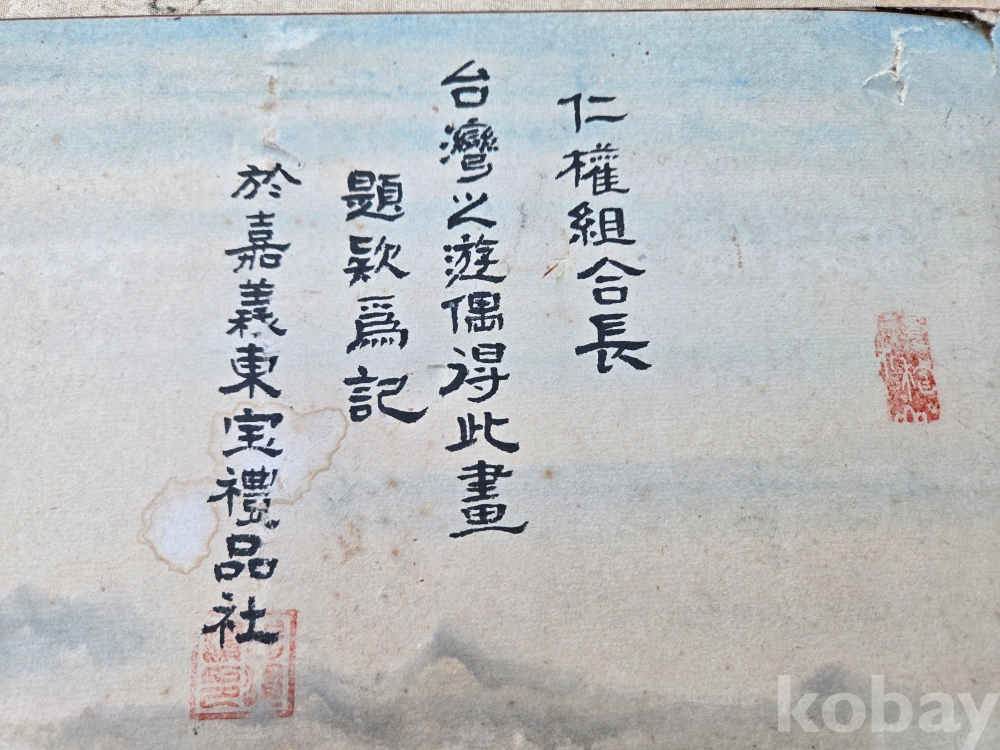 仁權組合長
台灣之遊偶得此畫
題款為記
於嘉義東宝禮品社
kobay